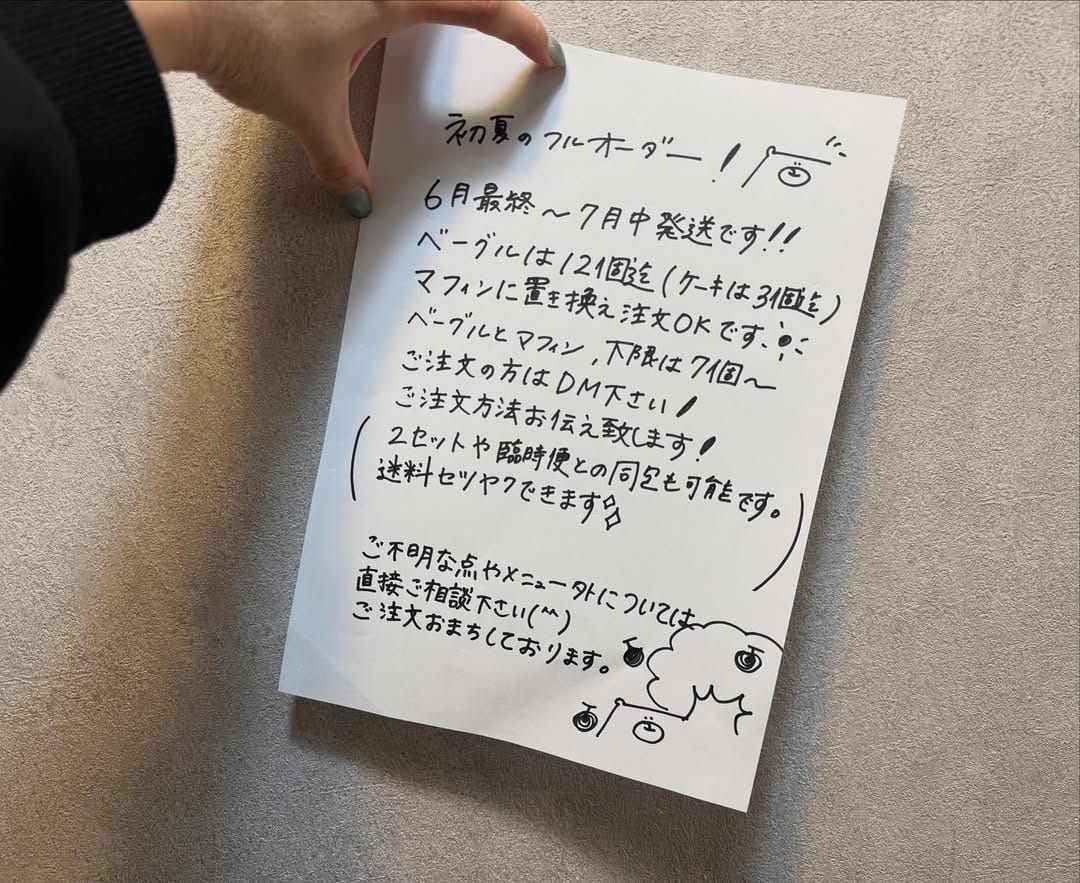 初夏のフルオーダー!
6月最終〜7月中発送です!!
ベーグルは12個迄(ケーキは3個迄)
マフィンに置き換え注文OKです、
ベーグルとマフィン、下限は7個〜
ご注文の方はDM下さい!
ご注文方法お伝え致します!
(2セットや臨時便との同包も可能です。
送料セツヤクできます)
ご不明な点やメニュー外については
直接ご相談下さい(^^)
ご注文おまちしております。